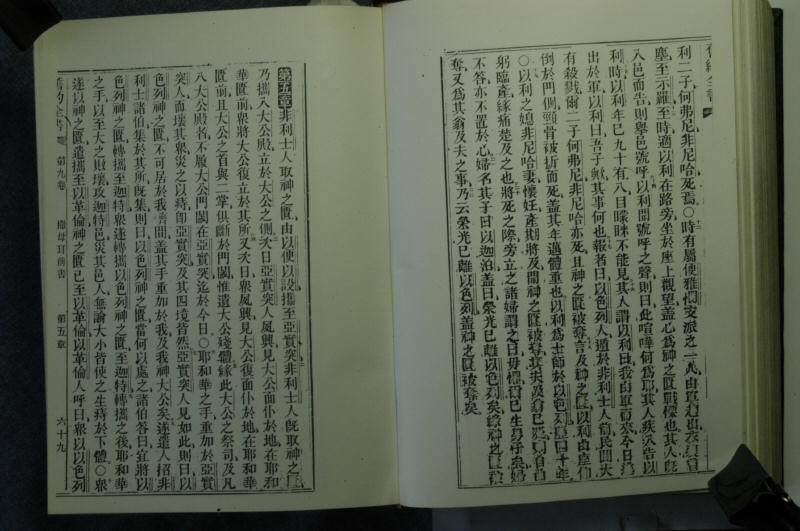 舊約全書
利二子何弗尼非尼哈死焉○時有屬便雅憫支派之一人由
塵至示羅至時適以利在路旁坐於座上觀望蓋心爲神之匱戰慄也其人旣
入邑而告則舉邑號呼以利聞號呼之聲則曰此喧嘩何爲耶其人疾入告以
利時以利年已九十有八目矇眛不能見其人謂以利曰我由軍而來今日
出於軍以利曰吾子歟其事何也報者曰以色列人遁於非利士人前民間大
有殺戮爾二子何弗尼非尼哈亦死且神之匱被奪言及神之匱以利由座仰
倒於門側頸骨被折而死蓋其年邁體重也以利爲士師於以色列歷四十年
○以利之媳非尼哈妻懷妊產期將及聞神之匱被奪其夫及翁已死則自
躬臨產緣痛楚及之也將死之際旁立之諸婦謂之曰毋懼爾已生男子矣婦
不答亦不置於心婦名其子曰以迦泊蓋曰榮光已離以色列矣緣神之匱
奪又爲其翁及夫之事乃云榮光已離以色列蓋神之匱被奪矣
第五章非利士人取神之匱由以便以設攜至亞實突非利士人旣取神之匱
乃攜入大公殿立於大公之側次日亞實突人夙興見大公面仆於地在耶和
華匱前衆將大公復立於其所又次日衆夙興見大公復面仆於地在耶和華
匱前且大公之首與二掌俱斷於門閾惟遺大公殘體緣此大公之祭司及凡
入大公殿者不履大公門閾在亞實突迄於今日○耶和華之手重加於亞實
突人而壞其衆災之以痔即亞實突及其四境皆然亞實突人見如此則曰以
色列神之匱不可居於我儕間蓋其手重加於我及我神大公矣遂遣人招非
利士諸伯集於其所旣集則曰以色列神之匱當何以處之諸伯答曰宜將以
色列神之匱轉攜至迦特衆遂轉攜以色列神之匱至迦特轉攜之後耶和華
之手以至大之敗壞攻迦特邑災其邑人無論大小皆使之生痔於下體○衆
遂以神之匱遣攜至以革倫神之匱已至以革倫以革倫人呼曰衆以以色列
舊約全書 第九卷 撒母耳前書 第五章 六十九